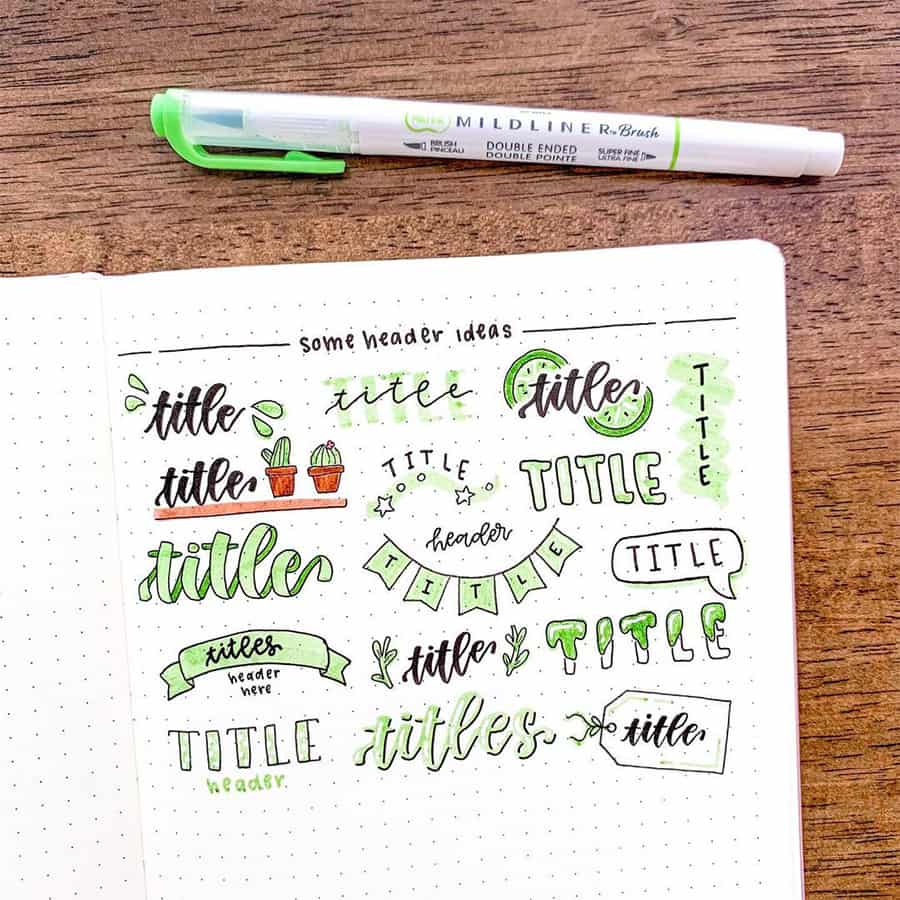 MILDLINER™ Brush
BRUSH
PINCEAU
DOUBLE ENDED
DOUBLE POINTE
SUPER FINE
ULTRA FINE
some header ideas
title
title
title
TITLE
title
TITLE
TITLE
title
header
TITLE
TITLE
titles
header
here
title
TITLE
TITLE
header
titles
title